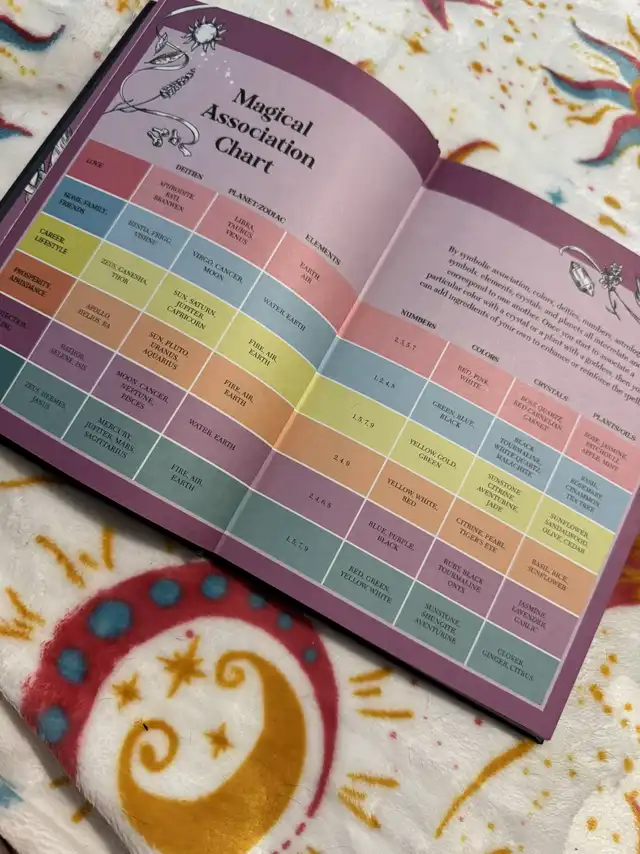 Magical
Association
Chart
DEITIES
PLANET/ZODIAC
ELEMENTS
LOVE
APHRODITE,
BRANWEN
LIBRA,
TAURUS,
VENUS
EARTH,
AIR
HOME, FAMILY,
FRIENDS
HESTIA, FRIGG,
VIRGO, CANCER,
MOON
WATER, EARTH
CAREER,
LIFESTYLE
ZEUS, GANESHA,
THOR
SUN, SATURN,
JUPITER,
CAPRICORN
FIRE, AIR,
EARTH
PROSPERITY,
ABUNDANCE
APOLLO,
SUN, PLUTO,
URANUS,
AQUARIUS
FIRE, AIR,
EARTH
HATHOR,
SELENE, ISIS
MOON, CANCER,
NEPTUNE,
PISCES
WATER, EARTH
ZEUS, HERMES,
JANUS
MERCURY,
JUPITER, MARS,
SAGITTARIUS
FIRE, AIR,
EARTH
By symbolic association, colors, deities, numbers, astrolo
symbols, elements, crystals, and planets all interrelate and
correspond to one another. Once you start to associate a
particular color with a crystal or a plant with a goddess, then
can add ingredients of your own to enhance or reinforce the spell
NUMBERS
COLORS
CRYSTALS
PLANTS/OILS
2, 3, 5, 7
RED, PINK,
WHITE
ROSE QUARTZ,
RED CARNELIAN,
GARNET
ROSE, JASMINE,
PATCHOULI,
APPLE, MINT
1, 2, 4, 8
GREEN, BLUE,
BLACK
BLACK
TOURMALINE,
WHITE QUARTZ,
MALACHITE
ROSEMARY,
CINNAMON,
TEA TREE
1, 5, 7, 9
YELLOW, GOLD,
GREEN
SUNSTONE,
CITRINE,
AVENTURINE,
JADE
SUNFLOWER,
SANDALWOOD,
OLIVE, CEDAR
YELLOW, WHITE,
RED
CITRINE, PEARL,
TIGER'S EYE
BASIL, RICE,
SUNFLOWER
BLUE, PURPLE,
BLACK
RUBY, BLACK
TOURMALINE,
ONYX
JASMINE,
LAVENDER,
GARLIC
1, 5, 7, 9
RED, GREEN,
YELLOW, WHITE
SUNSTONE,
SHUNGITE,
AVENTURINE
CLOVER,
GINGER, CITRUS